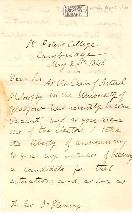 St Peter's College
Cambridge
May 2nd 1846
Dear Sir As the Chair of Natural
Philosophy in the University of
Glasgow has recently become
vacant and as you are
one of the Electors I take
the liberty of announcing
to you my intention of becoming
a candidate for that
situation and, as soon as